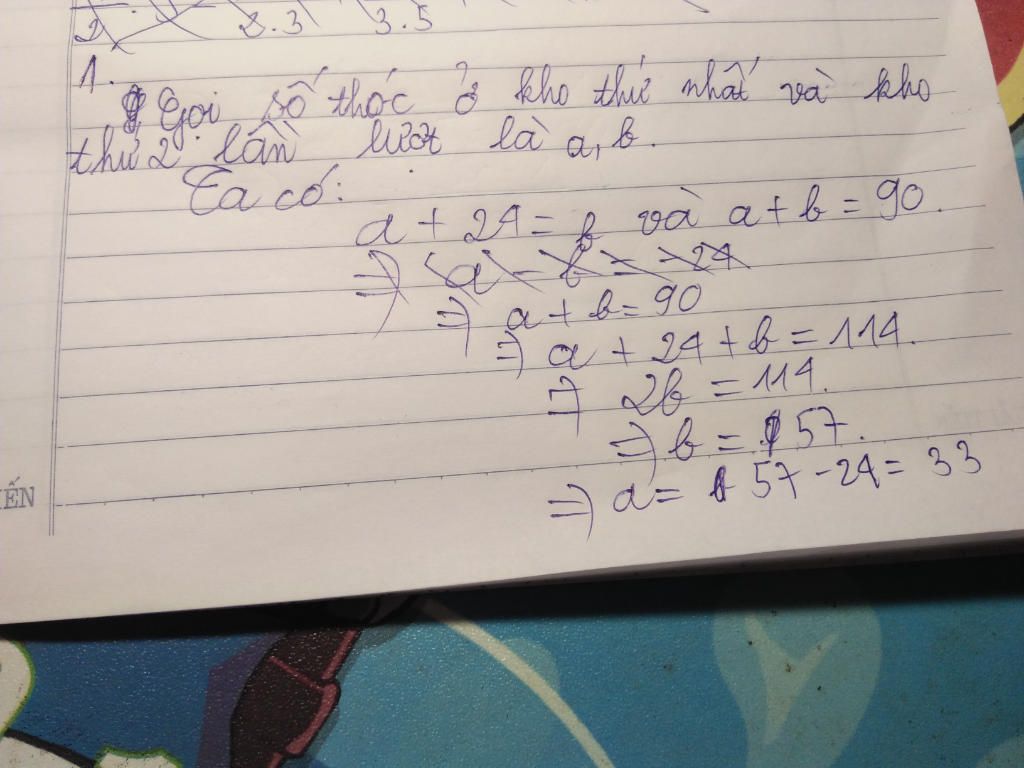 2 2.3 3.5
1.
Gọi số thóc ở kho thứ nhất và kho
thứ 2 lần lượt là a, b.
Ta có:
a + 24 = b và a + b = 90.
=> a - b = -24
=> a + b = 90
=> a + 24 + b = 114.
=> 2b = 114.
=> b = 57.
=> a = 57 - 24 = 33
ẾN